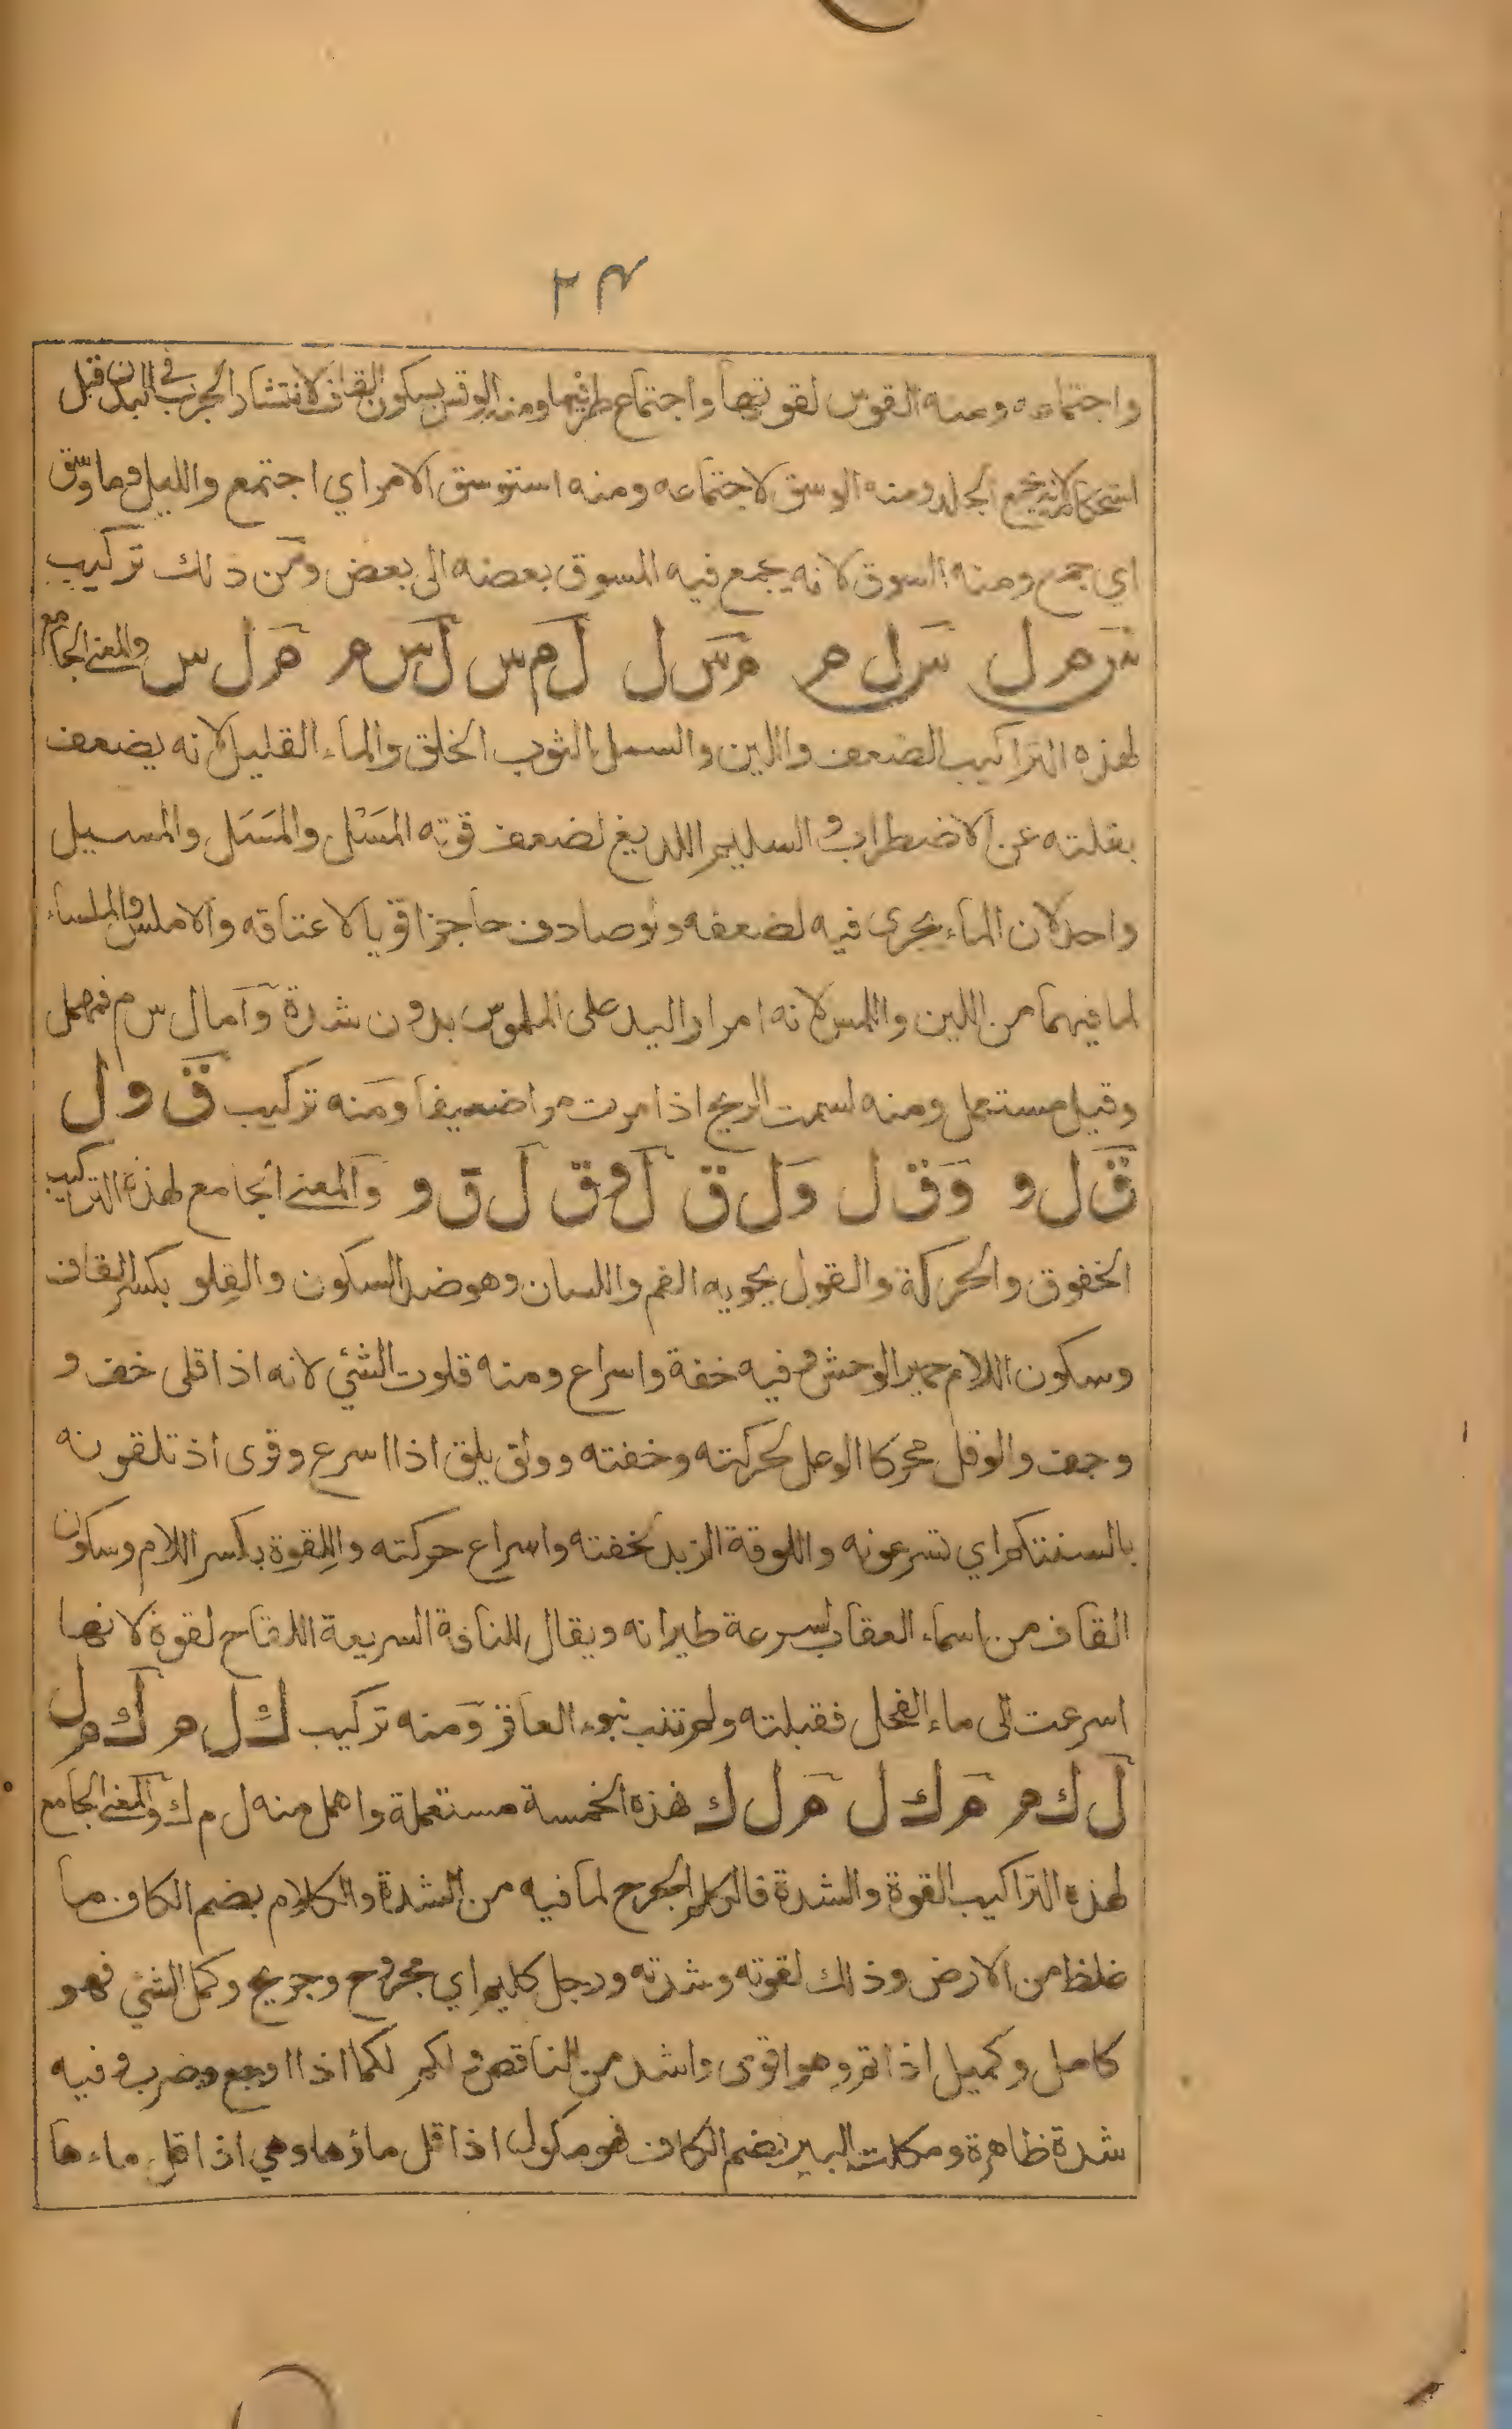 ٢٣
واجتماعه ومنه القوس لقوتها واجتماع طرفيها ومنه الوقس بسكون القاف لانتشار الجرب في البدن قبل
استحكامه لانه يجمع الجلد ومنه الوسق لاجتماعه ومنه استوسق الامر اي اجتمع والليل وما وسق
اي جمع ومنه السوق لانه يجمع فيه المسوق بعضه الى بعض ومن ذلك تركيب
س م ل س ل م م س ل ل م س ل س م م ل س والمعنى الجامع
لهذه التراكيب الضعف واللين والسمل الثوب الخلق والماء القليل لانه يضعف
بقلته عن الاضطراب و السليم اللديغ لضعف قوته المَسْل والمَسَل والمسيل
واحد لان الماء يجري فيه لضعفه ولو صادف حاجزا قويا لاعتاقه والاملس والملساء
لما فيهما من اللين واللمس لانه امرار اليد على الملموس بدون شدة وامال س م فمهمل
وقيل مستعمل ومنه لسمت الريح اذا مرت مرا ضعيفا ومنه تركيب ق و ل
ق ل و و ق ل و ل ق ل و ق ل ق و والمعنى الجامع لهذه التراكيب
الخفوق والحركة والقول يحويه الفم واللسان وهو ضد السكون والقِلو بكسر القاف
وسكون اللام حمير الوحش وفيه خفة واسراع ومنه قلوت الشئي لانه اذا قلى خف و
وجف والوقل محركا الوعل لحركته وخفته وولق يلق اذا اسرع وقرى اذ تلقونه
بالسنتكم اي تسرعونه واللوقة الزبد لخفته واسراع حركته واللِقوة بكسر اللام وسكون
القاف من اسماء العقاب لسرعة طيرانه ويقال للناقة السريعة اللقاح لقوة لانها
اسرعت الى ماء الفحل فقبلته ولم تنب نبوء العاقر ومنه تركيب ك ل م ك م ل
ل ك م م ك ل م ل ك فهذه الخمسة مستعملة واهمل منه ل م ك والمعنى الجامع
لهذه التراكيب القوة والشدة فالكلم الجرح لما فيه من الشدة والكلام بضم الكاف ما
غلظ من الارض وذلك لقوته وشدته ورجل كليم اي مجروح وجريح وكمل الشئي فهو
كامل وكميل اذا تم وهو اقوى واشد من الناقص و لكم لكما اذا اوجع وضرب وفيه
شدة ظاهرة ومكلت البير بضم الكاف فهو مكول اذا قل ماؤها وهي اذا قل ماءها